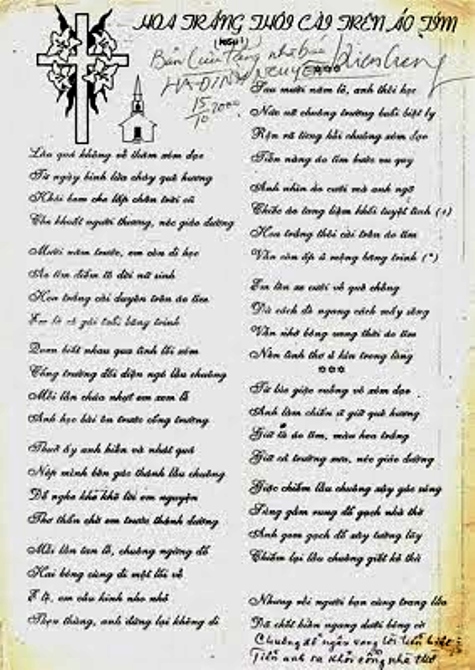 HOA TRẮNG THÔI CÀI TRÊN ÁO TÍM
Bản
15
10 2000
Lâu quá không về thăm xóm đạo
Từ ngày binh lửa cháy quê hương
Khói bom che lấp chân trời cũ
Che khuất người thương, nóc giáo đường
Mười năm trước, em còn đi học
Áo tím điểm tô đời nữ sinh
Hoa trắng cài duyên trên áo tím
Em là cô gái tuổi băng trinh
Quen biết nhau qua tình lối xóm
Cổng trường đối diện ngó lầu chuông
Mỗi lần chúa nhựt em xem lễ
Anh học bài ôn trước cổng trường
Thuở ấy anh hiền và nhát quá
Nép mình bên gác thánh lầu chuông
Để nghe khe khẽ lời em nguyện
Thơ thẩn chờ em trước thánh đường
Mỗi lần tan lễ, chuông ngừng đổ
Hai bóng cùng đi một lối về
E lệ, em cầu kinh nho nhỏ
Thẹn thùng, anh đứng lại không đi
Sau mười năm lẻ, anh thôi học
Nức nở chuông trường buổi biệt ly
Rộn rã từng hồi chuông xóm đạo
Tiễn nàng áo tím bước vu quy
Anh nhìn áo cưới mà anh ngỡ
Chiếc áo tang liệm khối tuyệt tình (+)
Hoa trắng thôi cài trên áo tím
Vẫn còn ấp ủ mộng băng trinh (*)
Em lên xe cưới về quê chồng
Dù cách đò ngang cách mấy sông
Vẫn nhớ bóng vang thời áo tím
Nên tình thơ ủ kín trong lòng
Từ lúc giặc ruồng vô xóm đạo
Anh làm chiến sĩ giữ quê hương
Giữ tà áo tím, màu hoa trắng
Giữ cả trường xưa, nóc giáo đường
Giặc chiếm lầu chuông xây gác súng
Súng gầm rung đổ gạch nhà thờ
Anh gom gạch đổ xây tường lũy
Chiếm lại lầu chuông giết kẻ thù
Nhưng rồi người bạn cùng trang lứa
Đã chết hiên ngang dưới bóng cờ
Chuông đổ ngân vang lời tiễn biệt
Tiễn anh ra khỏi cổng nhà thờ